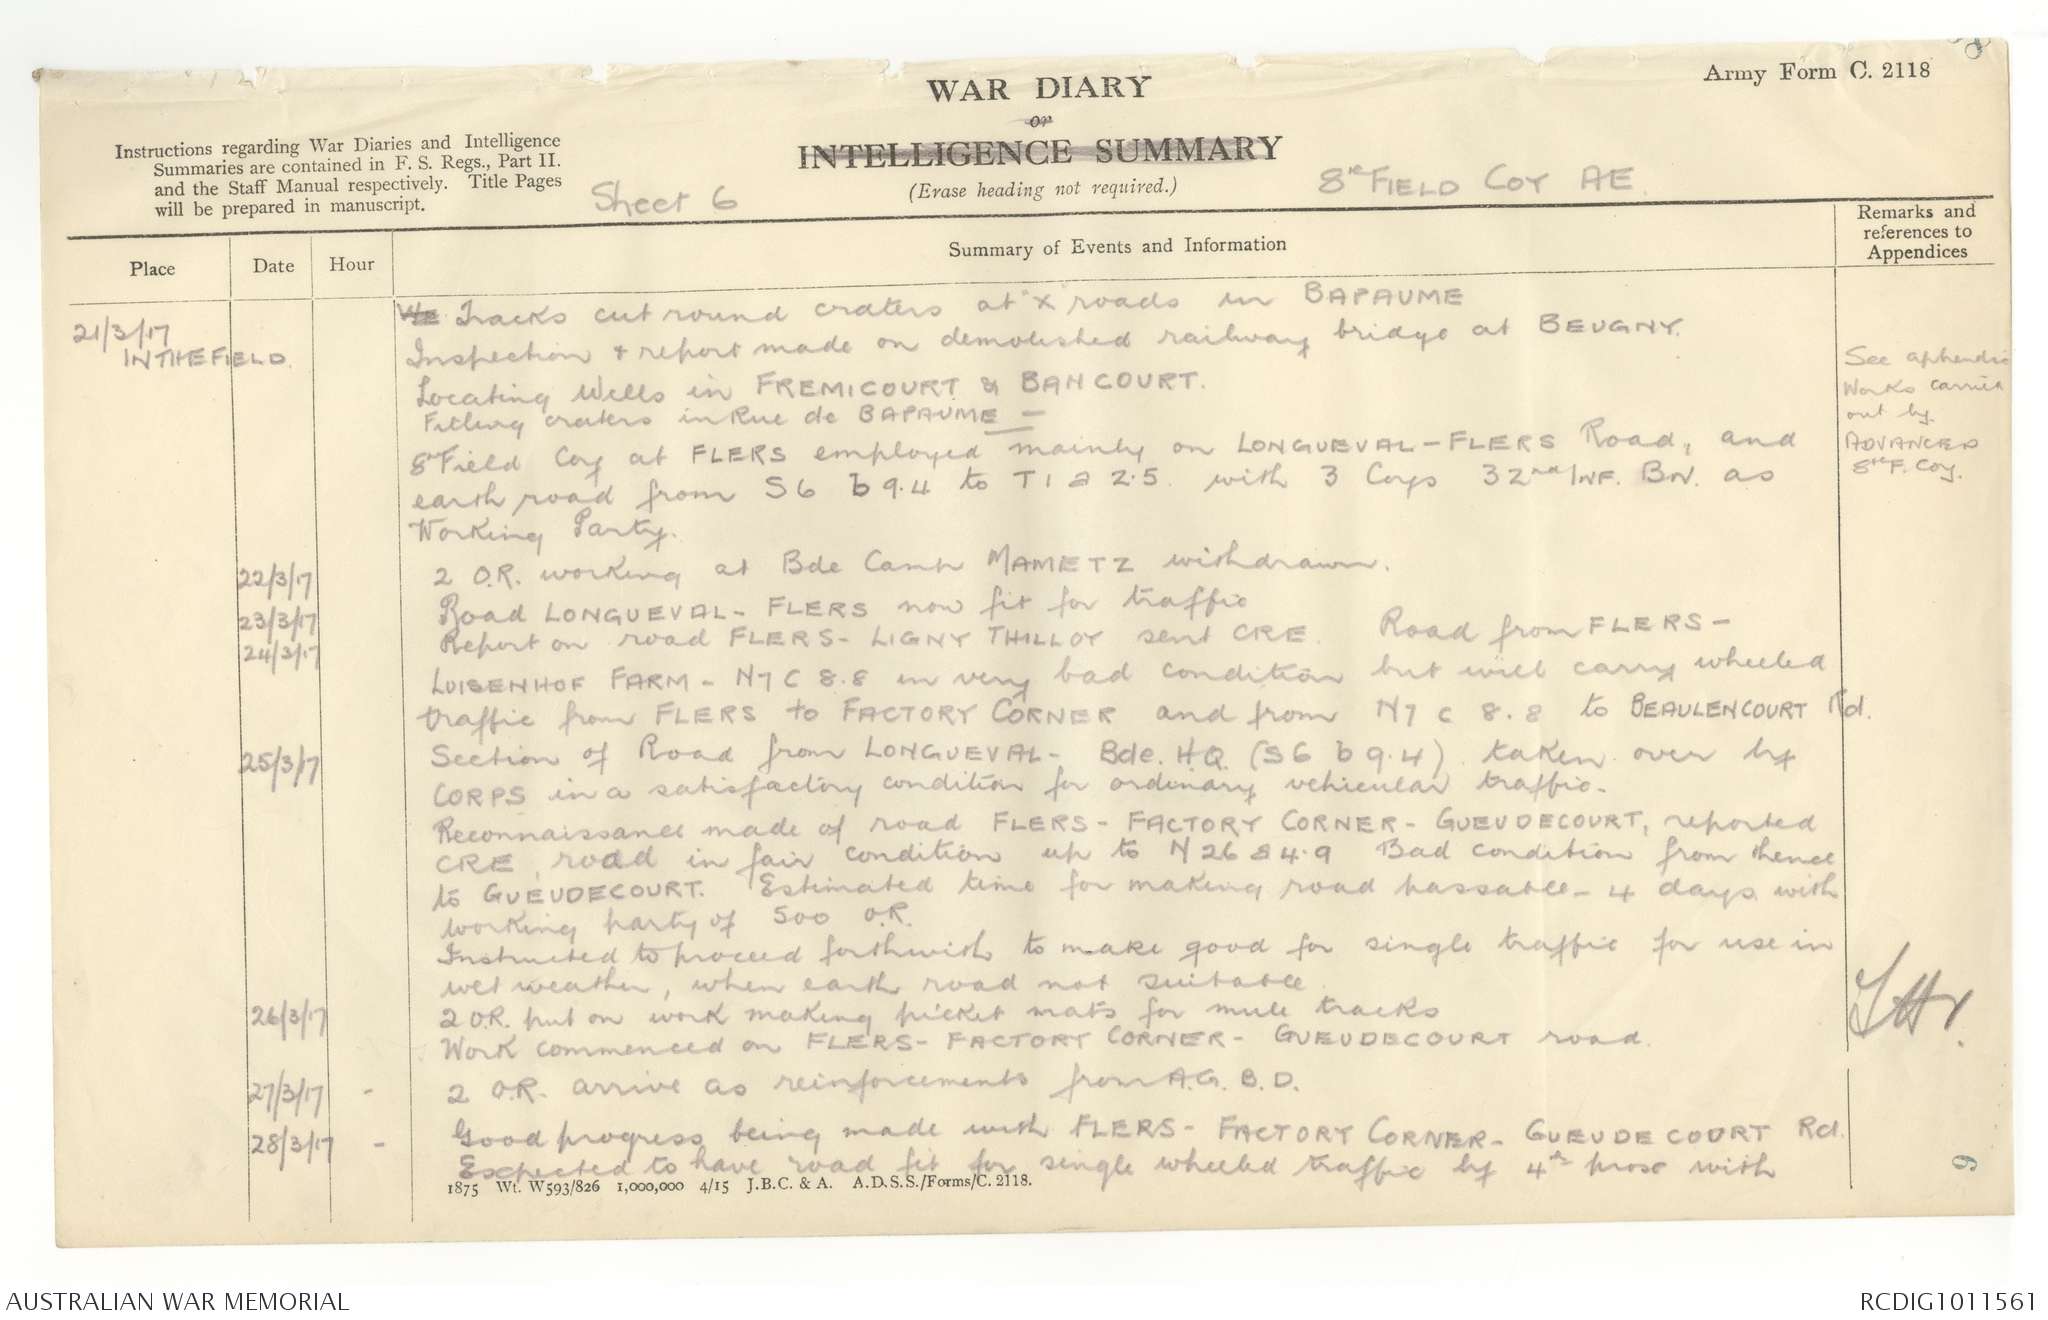 Army Form C. 2118
WAR DIARY
or
INTELLIGENCE SUMMARY
(Erase heading not required.)
Instructions regarding War Diaries and Intelligence
Summaries are contained in F. S. Regs., Part II.
and the Staff Manual respectively. Title Pages
will be prepared in manuscript.
Sheet 6
8th FIELD COY AE.
Place
Date
Hour
Summary of Events and Information
Remarks and
references to
Appendices
21/3/17
IN THE FIELD.
Tracks cut round craters at "X" roads in BAPAUME
Inspection & report made on demolished railway bridge at BEUGNY.
Locating Wells in FREMICOURT & BANCOURT.
Filling craters in Rue de BAPAUME —
8th Field Coy at FLERS employed mainly on LONGUEVAL - FLERS Road, and
earth road from S6 b 9.4 to T1 a 2.5. with 3 Coys 32nd INF. BN. as
Working Party.
See appendix
Works carried
out by
ADVANCED
8th F. Coy.
22/3/17
2 O.R. working at Bde Camp MAMETZ withdrawn.
23/3/17
Road LONGUEVAL - FLERS now fit for traffic
24/3/17
Report on road FLERS - LIGNY THILLOY sent CRE. Road from FLERS -
LUISENHOF FARM - N7 C 8.8 in very bad condition but will carry wheeled
traffic from FLERS to FACTORY CORNER and from N7 c 8.8 to BEAULENCOURT Rd.
25/3/17
Section of Road from LONGUEVAL - Bde. HQ. (S6 b 9.4) taken over by
CORPS in a satisfactory condition for ordinary vehicular traffic.
Reconnaissance made of road FLERS - FACTORY CORNER - GUEUDECOURT, reported
CRE, road in fair condition up to N26 a 4.9 Bad condition from thence
to GUEUDECOURT. Estimated time for making road passable - 4 days with
working party of 500 O.R.
Instructed to proceed forthwith to make good for single traffic for use in
wet weather, when earth road not suitable.
26/3/17
2 O.R. put on work making picket mats for mule tracks
Work commenced on FLERS - FACTORY CORNER - GUEUDECOURT road.
27/3/17 -
2 O.R. arrive as reinforcements from A.G.B.D.
28/3/17 -
Good progress being made with FLERS - FACTORY CORNER - GUEUDECOURT Rd.
Expected to have road fit for single wheeled traffic by 4th prox with
1875 Wt. W593/826 1,000,000 4/15 J.B.C. & A. A.D.S.S./Forms/C. 2118.
9
AUSTRALIAN WAR MEMORIAL
RCDIG1011561